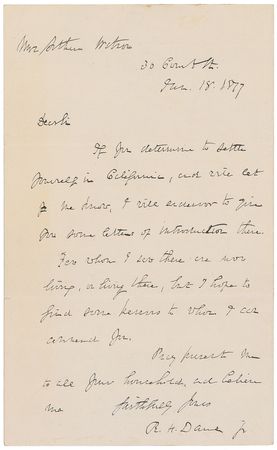 Mr Arthur Watson
30 Court St.
Jan. 18. 1877
Dear Sir
If you determine to settle
yourself in California, and will let
me know, I will endeavor to give
you some letters of introduction there.
Few whom I saw there are now
living, or living there, but I hope to
find some persons to whom I can
commend you.
Pray present me
to all your household, and believe
me faithfully yours
R. H. Dana Jr